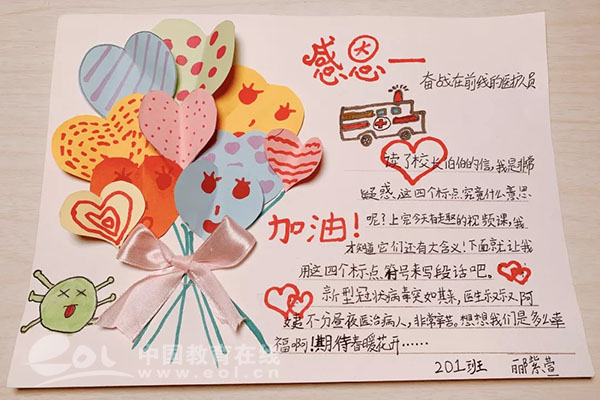 感恩一
奋战在前线的医护人员
读了校长伯伯的信,我是非常
疑惑,这四个标点究竟什么意思
呢?上完今天有趣的视频课,我
才知道它们还有大含义!下面就让我
用这四个标点符号来写段话吧。
加油!
新型冠状病毒突如其来,医生叔叔阿
姨不分昼夜医治病人,非常辛苦。想想我们是多么幸
福啊!期待春暖花开……
201班
紫萱
eol 中国教育在线
www.eol.cn